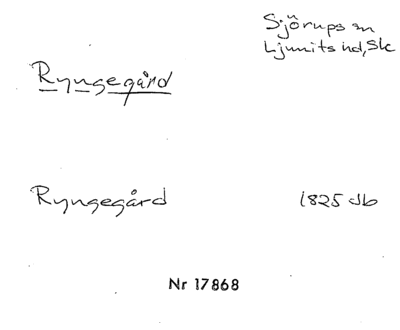 Sjörups sn
Ljunits hd, Sk
Ryngegård
Ryngegård 1825 Jb
Nr 17868